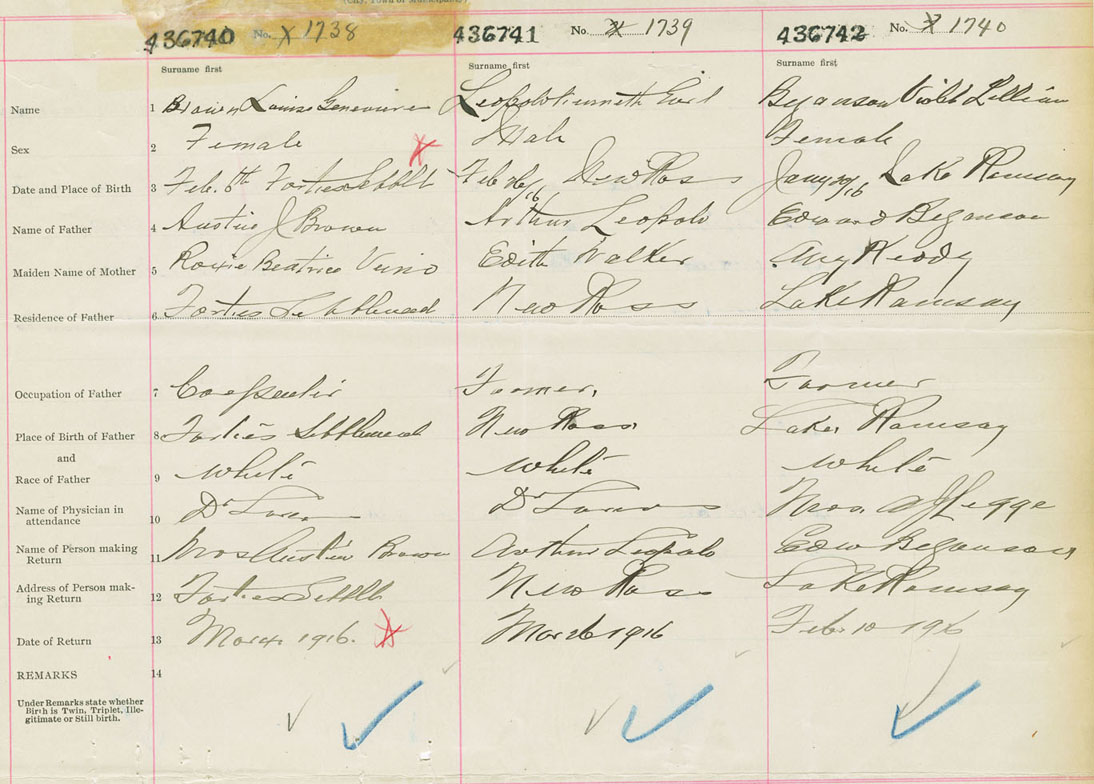 (City, Town or Municipality)
436740 No. X 1738 436741 No. X 1739 436742 No. X 1740
Surname first Surname first Surname first
Name 1 Brown Louise Genevieve Leopold Earl Beganson Violet Lillian
Sex 2 Female Male Female
Date and Place of Birth 3 Feb. 6th Forties Settlt Feb 26/16 New Ross Jany 29/16 Lake Ramsay
Name of Father 4 Austin J Brown Arthur Leopold Edward Beganson
Maiden Name of Mother 5 Roxie Beatrice Edith Walker Amy Keddy
Residence of Father 6 Forties Settlement New Ross Lake Ramsay
Occupation of Father 7 Carpenter Farmer. Farmer
Place of Birth of Father 8 Forties Settlement New Ross Lake Ramsay
and
Race of Father 9 White White White
Name of Physician in
attendance 10 Dr Dr Mrs. Legge
Name of Person making
Return 11 Mrs Austin Brown Arthur Leopold Edw Beganson
Address of Person mak-
ing Return 12 Forties Settlt New Ross Lake Ramsay
Date of Return 13 Mar 4. 1916. Mar 26 1916 Feb. 10 1916
REMARKS 14
Under Remarks state whether
Birth is Twin, Triplet, Ille-
gitimate or Still birth.